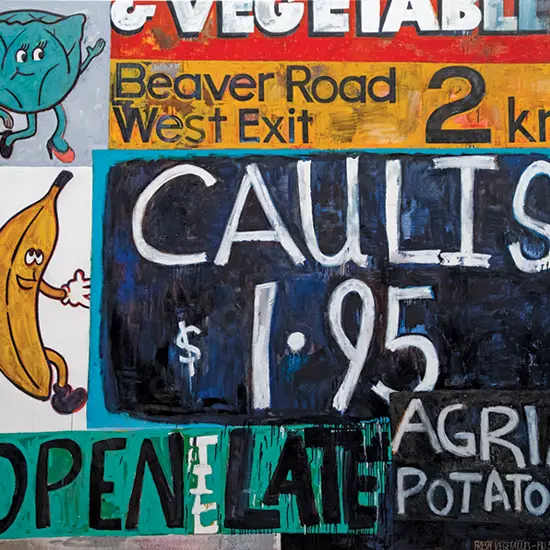 & VEGETABL
Beaver Road
West Exit
2 km
CAULIS
$ 1.95
OPEN TIL LATE
AGRIA
POTATO
FRESH VEGETABLES-